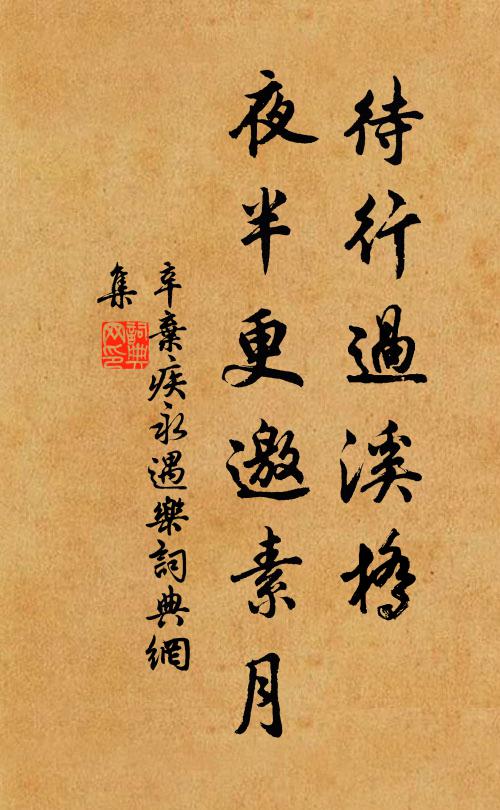 待行過溪橋
夜半更邀素月
辛棄疾永遇樂詞典網
集
詞典
网印